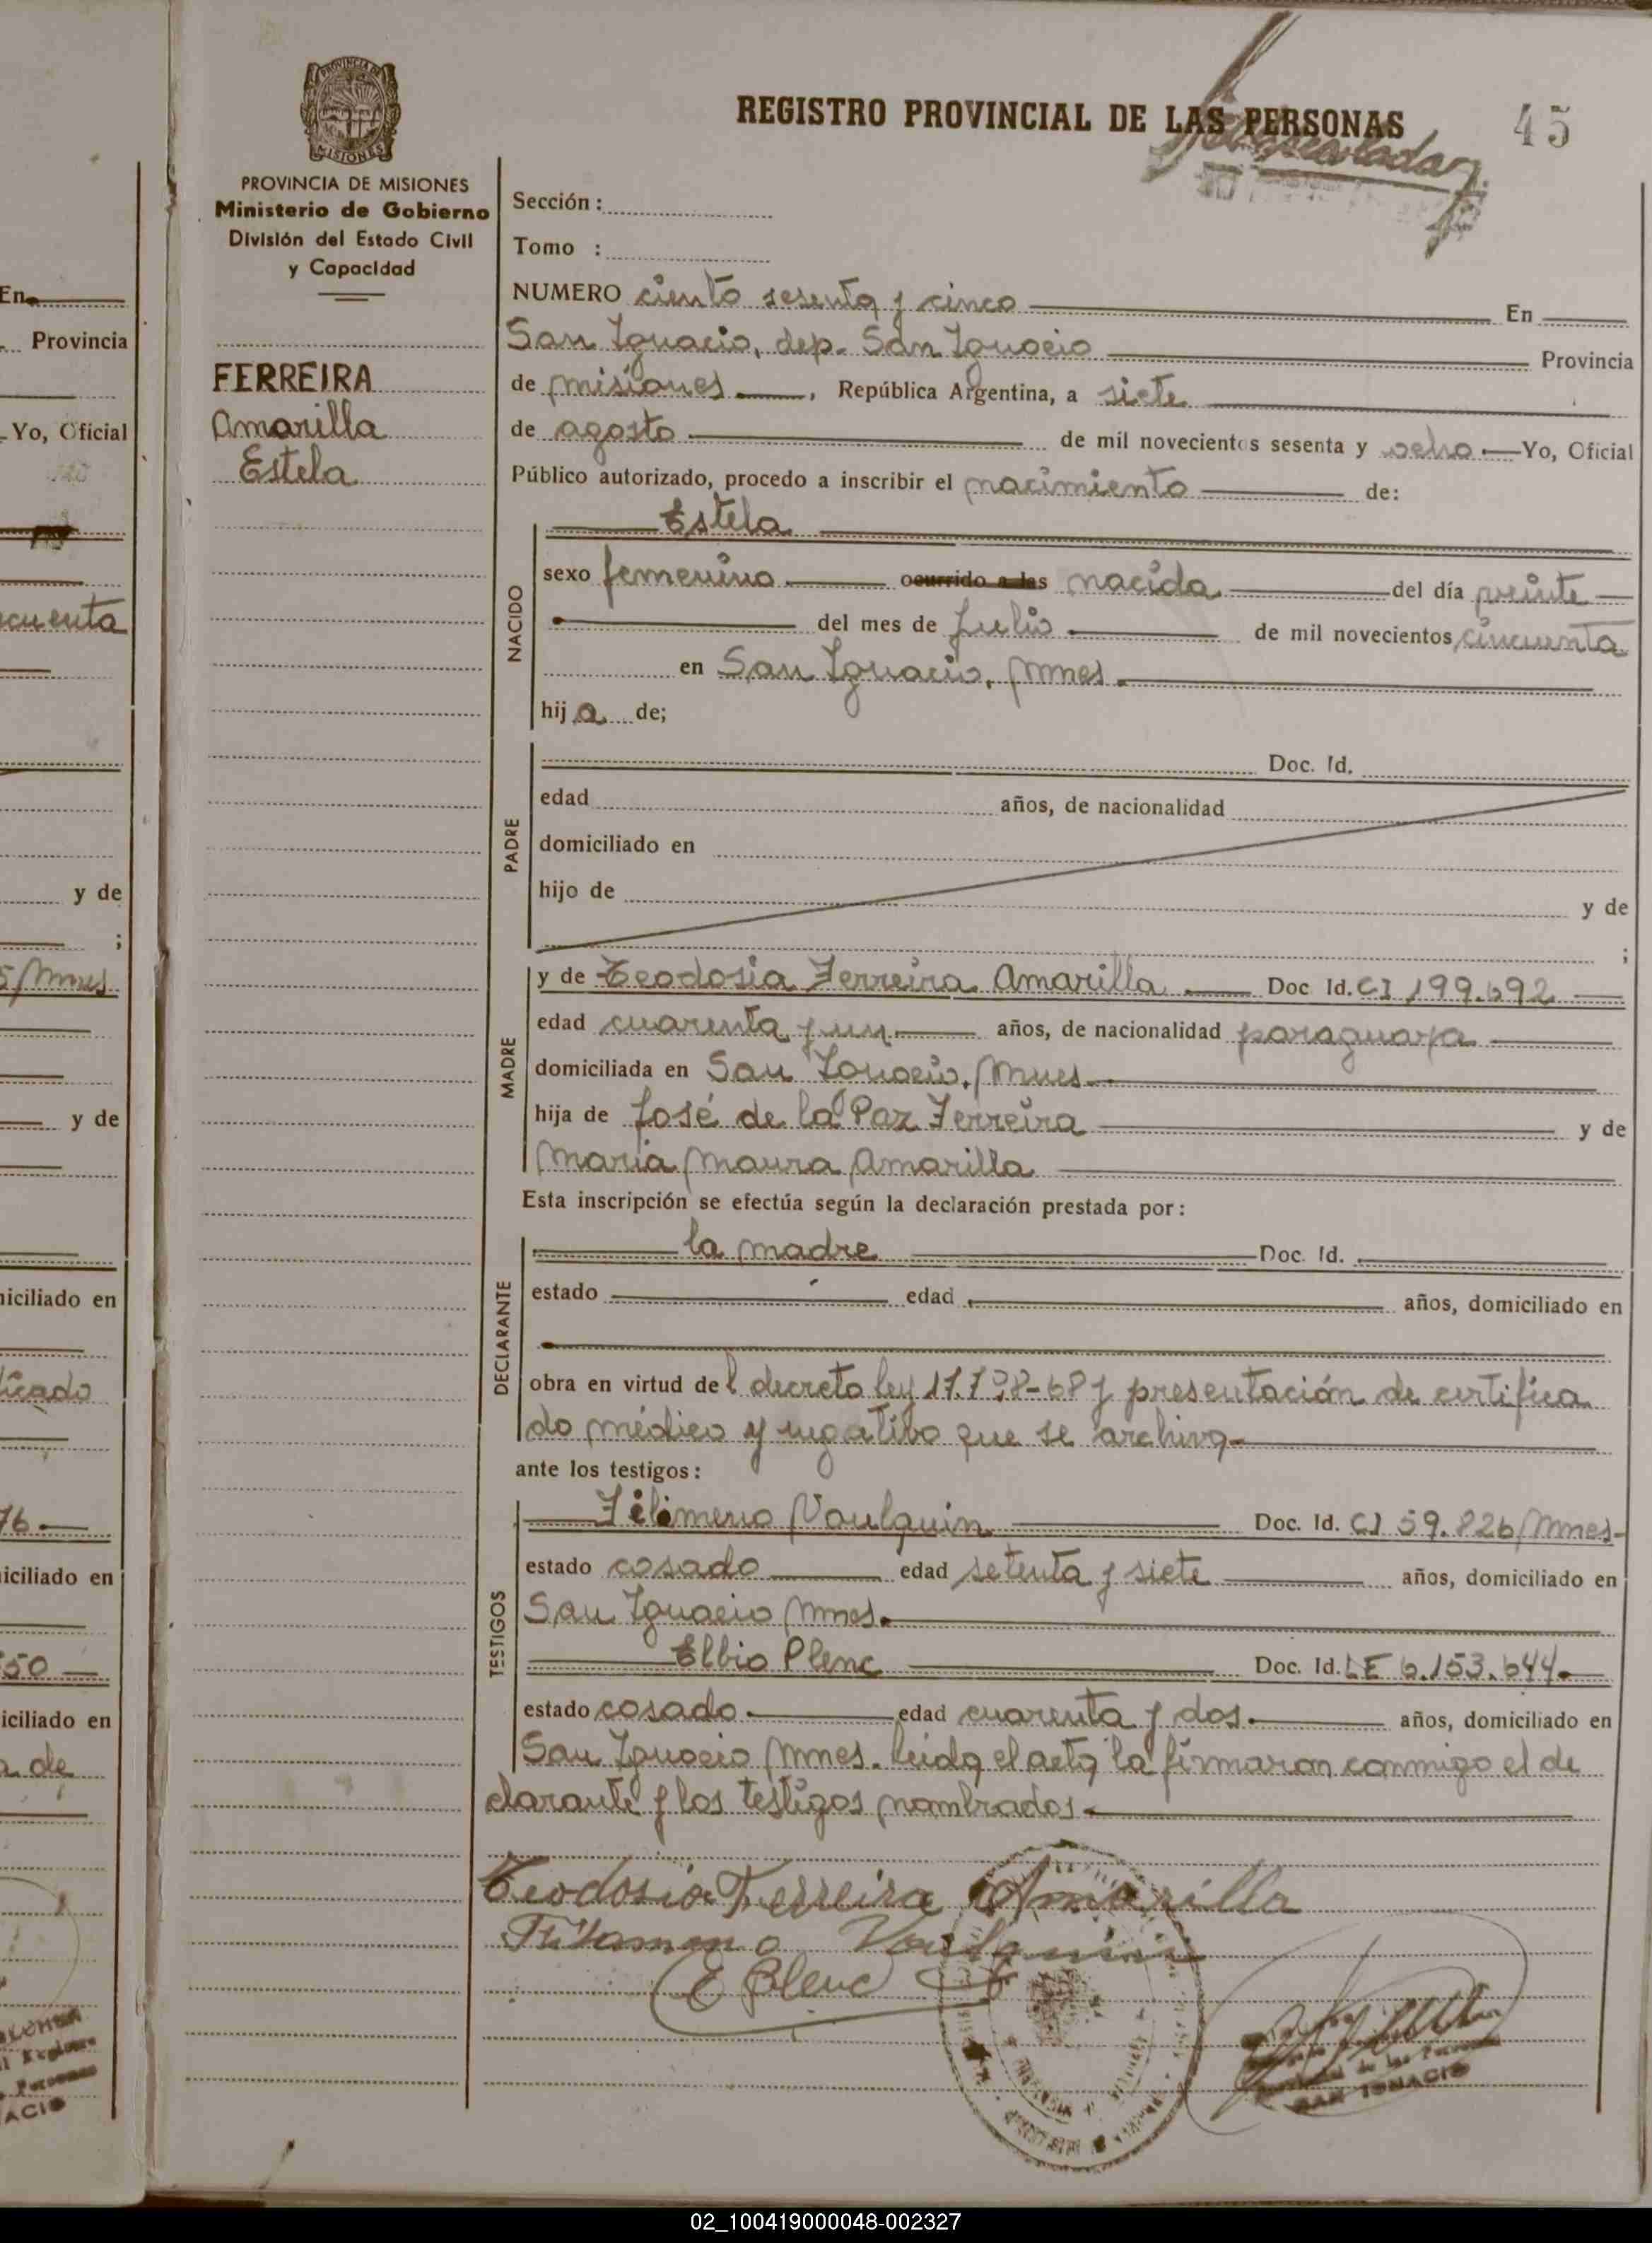 REGISTRO PROVINCIAL DE LAS PERSONAS
45
PROVINCIA DE MISIONES
Ministerio de Gobierno
División del Estado Civil
y Capacidad
FERREIRA
Amarilla
Estela
Sección :
Tomo :
NUMERO ciento sesenta y cinco En
San Ignacio, dep. San Ignacio Provincia
de misiones, República Argentina, a siete
de agosto de mil novecientos sesenta y ocho Yo, Oficial
Público autorizado, procedo a inscribir el nacimiento de:
NACIDO
Estela
sexo femenino ocurrido a las nacida del día veinte
del mes de Julio de mil novecientos cincuenta
en San Ignacio, Mnes.
hija de;
PADRE
Doc. Id.
edad años, de nacionalidad
domiciliado en
hijo de y de
;
MADRE
y de Teodosia Ferreira Amarilla Doc Id. CI 199.692
edad cuarenta y un años, de nacionalidad paraguaya
domiciliada en San Ignacio, Mnes.
hija de José de la Paz Ferreira y de
Maria Maura Amarilla
Esta inscripción se efectúa según la declaración prestada por:
DECLARANTE
la madre Doc. Id.
estado edad años, domiciliado en
obra en virtud del decreto ley y presentación de certifica
do médico y negativo que se archiva
ante los testigos:
TESTIGOS
Filomeno Voulquin Doc. Id. CI 59.826/Mnes-
estado casado edad setenta y siete años, domiciliado en
San Ignacio Mnes.
Elbio Plenc Doc. Id. LE 6.153.644.
estado casado edad cuarenta y dos. años, domiciliado en
San Ignacio Mnes. leida el acta la firmaron conmigo el de
clarante y los testigos nombrados
Teodosia Ferreira Amarilla
Filomeno Voulquin
E Plenc
SAN IGNACIO
En
Provincia
Yo, Oficial
cuenta
y de
;
5/Mnes.
y de
iciliado en
ficado
76
iciliado en
50
iciliado en
a de
02_100419000048-002327